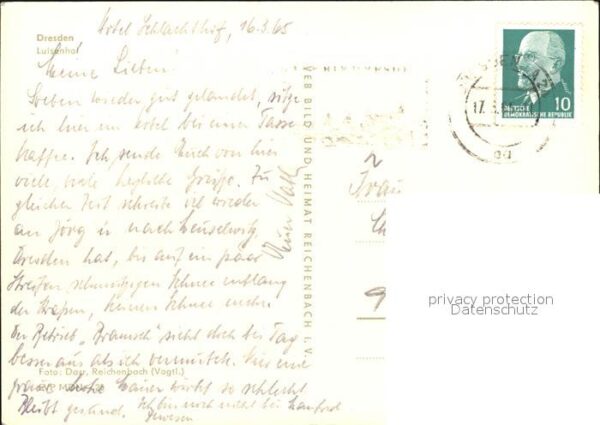 Dresden
Luisenhof
Hotel Schlachthof, 16.3.65
Meine Lieben!
Soeben wieder gut gelandet, sitze
ich hier im Hotel bei einer Tasse
Kaffee. Ich sende Euch von hier
viele, viele herzliche Grüße. Zu
gleicher Zeit schreibe ich wieder
an Jörg u. nach
Dresden hat, bis auf ein paar
Streifen schmutzigen Schnee entlang
der Straßen, keinen Schnee mehr.
Der Betrieb "Bramsch" sieht doch bei Tag
besser aus als ich vermutet. Nur eine
graue hohe Mauer wirkt so schlecht
Bleibt gesund. Ich bin noch nicht bei
gewesen
Euer Vati
Foto: Darr, Reichenbach (Vogtl.)
VEB BILD UND HEIMAT REICHENBACH I. V.
DEUTSCHE
DEMOKRATISCHE REPUBLIK
10
17.
Frau
privacy protection
Datenschutz